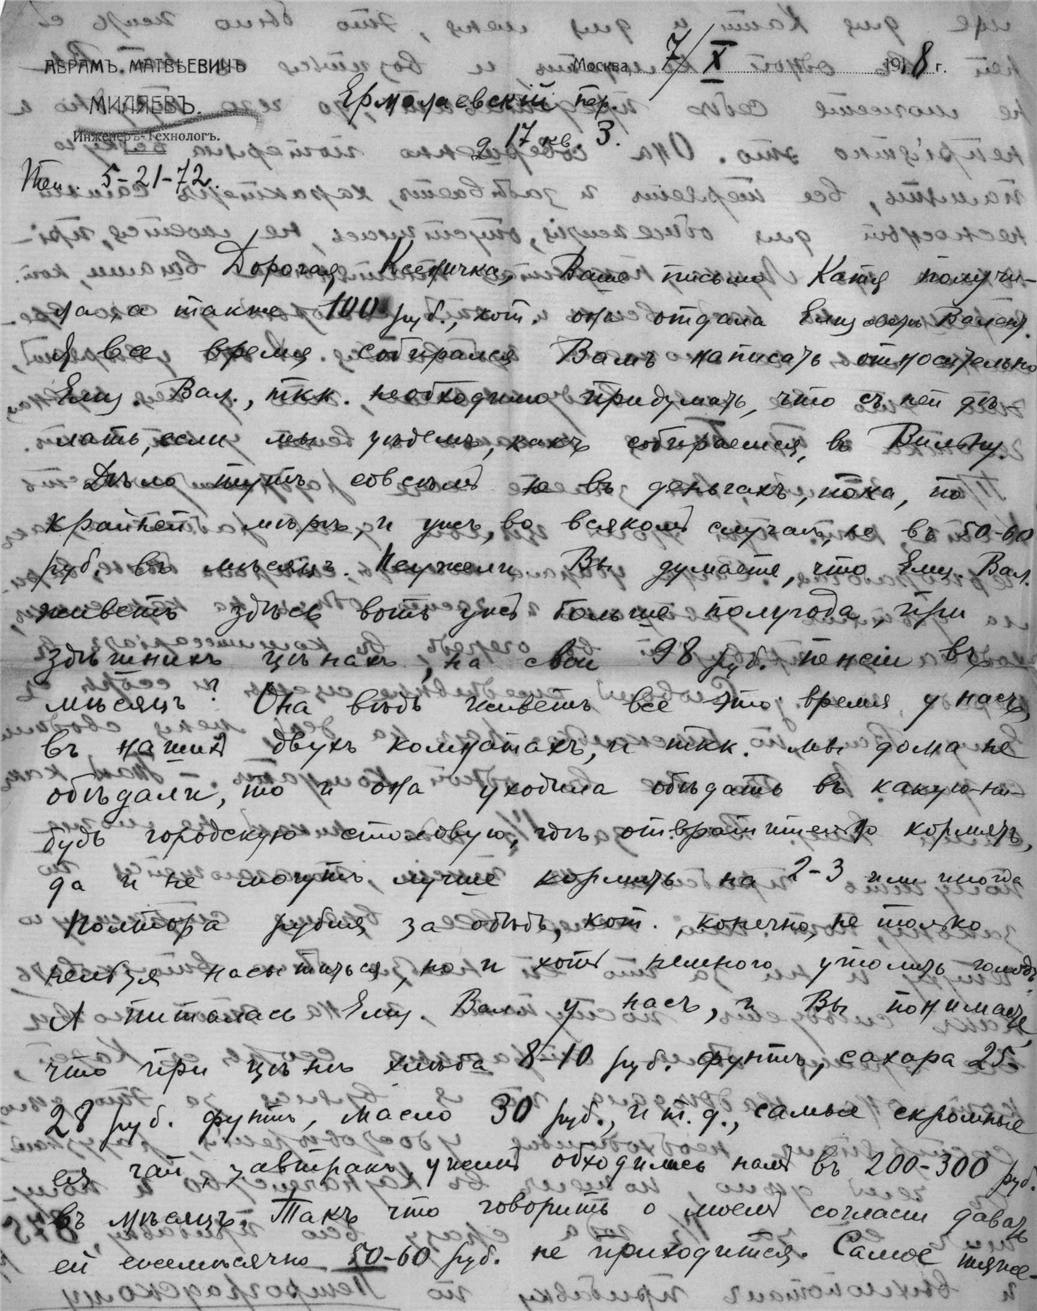 АБРАМЪ МАТВѢЕВИЧЪ
МИЛЯЕВЪ.
Инженеръ-Технологъ.
Москва 7/X 1918 г.
Ермолаевскій пер.
17 кв. 3.
Тел. 5-21-72.
Дорогая Ксеничка, Ваше письмо Катя получи-
ла, а также 100 руб., кот. она отдала Елиз Валент.
Я все время собирался Вамъ написать относительно
Елиз. Вал., ткк. необходимо придумать, что съ ней дѣ-
лать, если мы уѣдемъ, какъ собираемся, въ Вильну.
Дѣло тутъ совсѣмъ не въ деньгахъ, пока, по
крайней мѣрѣ, и ужъ, во всякомъ случаѣ, не въ 50-60
руб. въ мѣсяцъ. Неужели Вы думаете, что Елиз. Вал.
живетъ здѣсь вотъ уже больше полугода, при
здѣшнихъ цѣнахъ, на свои 98 руб. пенсіи въ
мѣсяцъ? Она вѣдь живетъ все это время у насъ,
въ нашихъ двухъ комнатахъ, и ткк. мы дома не
обѣдали, то и она уходила обѣдать въ какую-ни-
будь городскую столовую, гдѣ отвратительно кормятъ,
да и не могутъ лучше кормить на 2-3 или иногда
полтора рубля за обѣдъ, кот., конечно, не только
нельзя насытиться, но и хотя немного утолить голодъ.
А питалась Елиз. Вал. у насъ, и Вы понимаете,
что при цѣнѣ хлѣба 8-10 руб. фунтъ, сахара 25-
28 руб. фунтъ, масло 30 руб., и т.д., самые скромные
ея чай, завтракъ, ужинъ обходились намъ въ 200-300 руб.
въ мѣсяцъ. Такъ что говорить о моемъ согласіи давать
ей ежемѣсячно 50-60 руб. не приходится. Самое тяже-